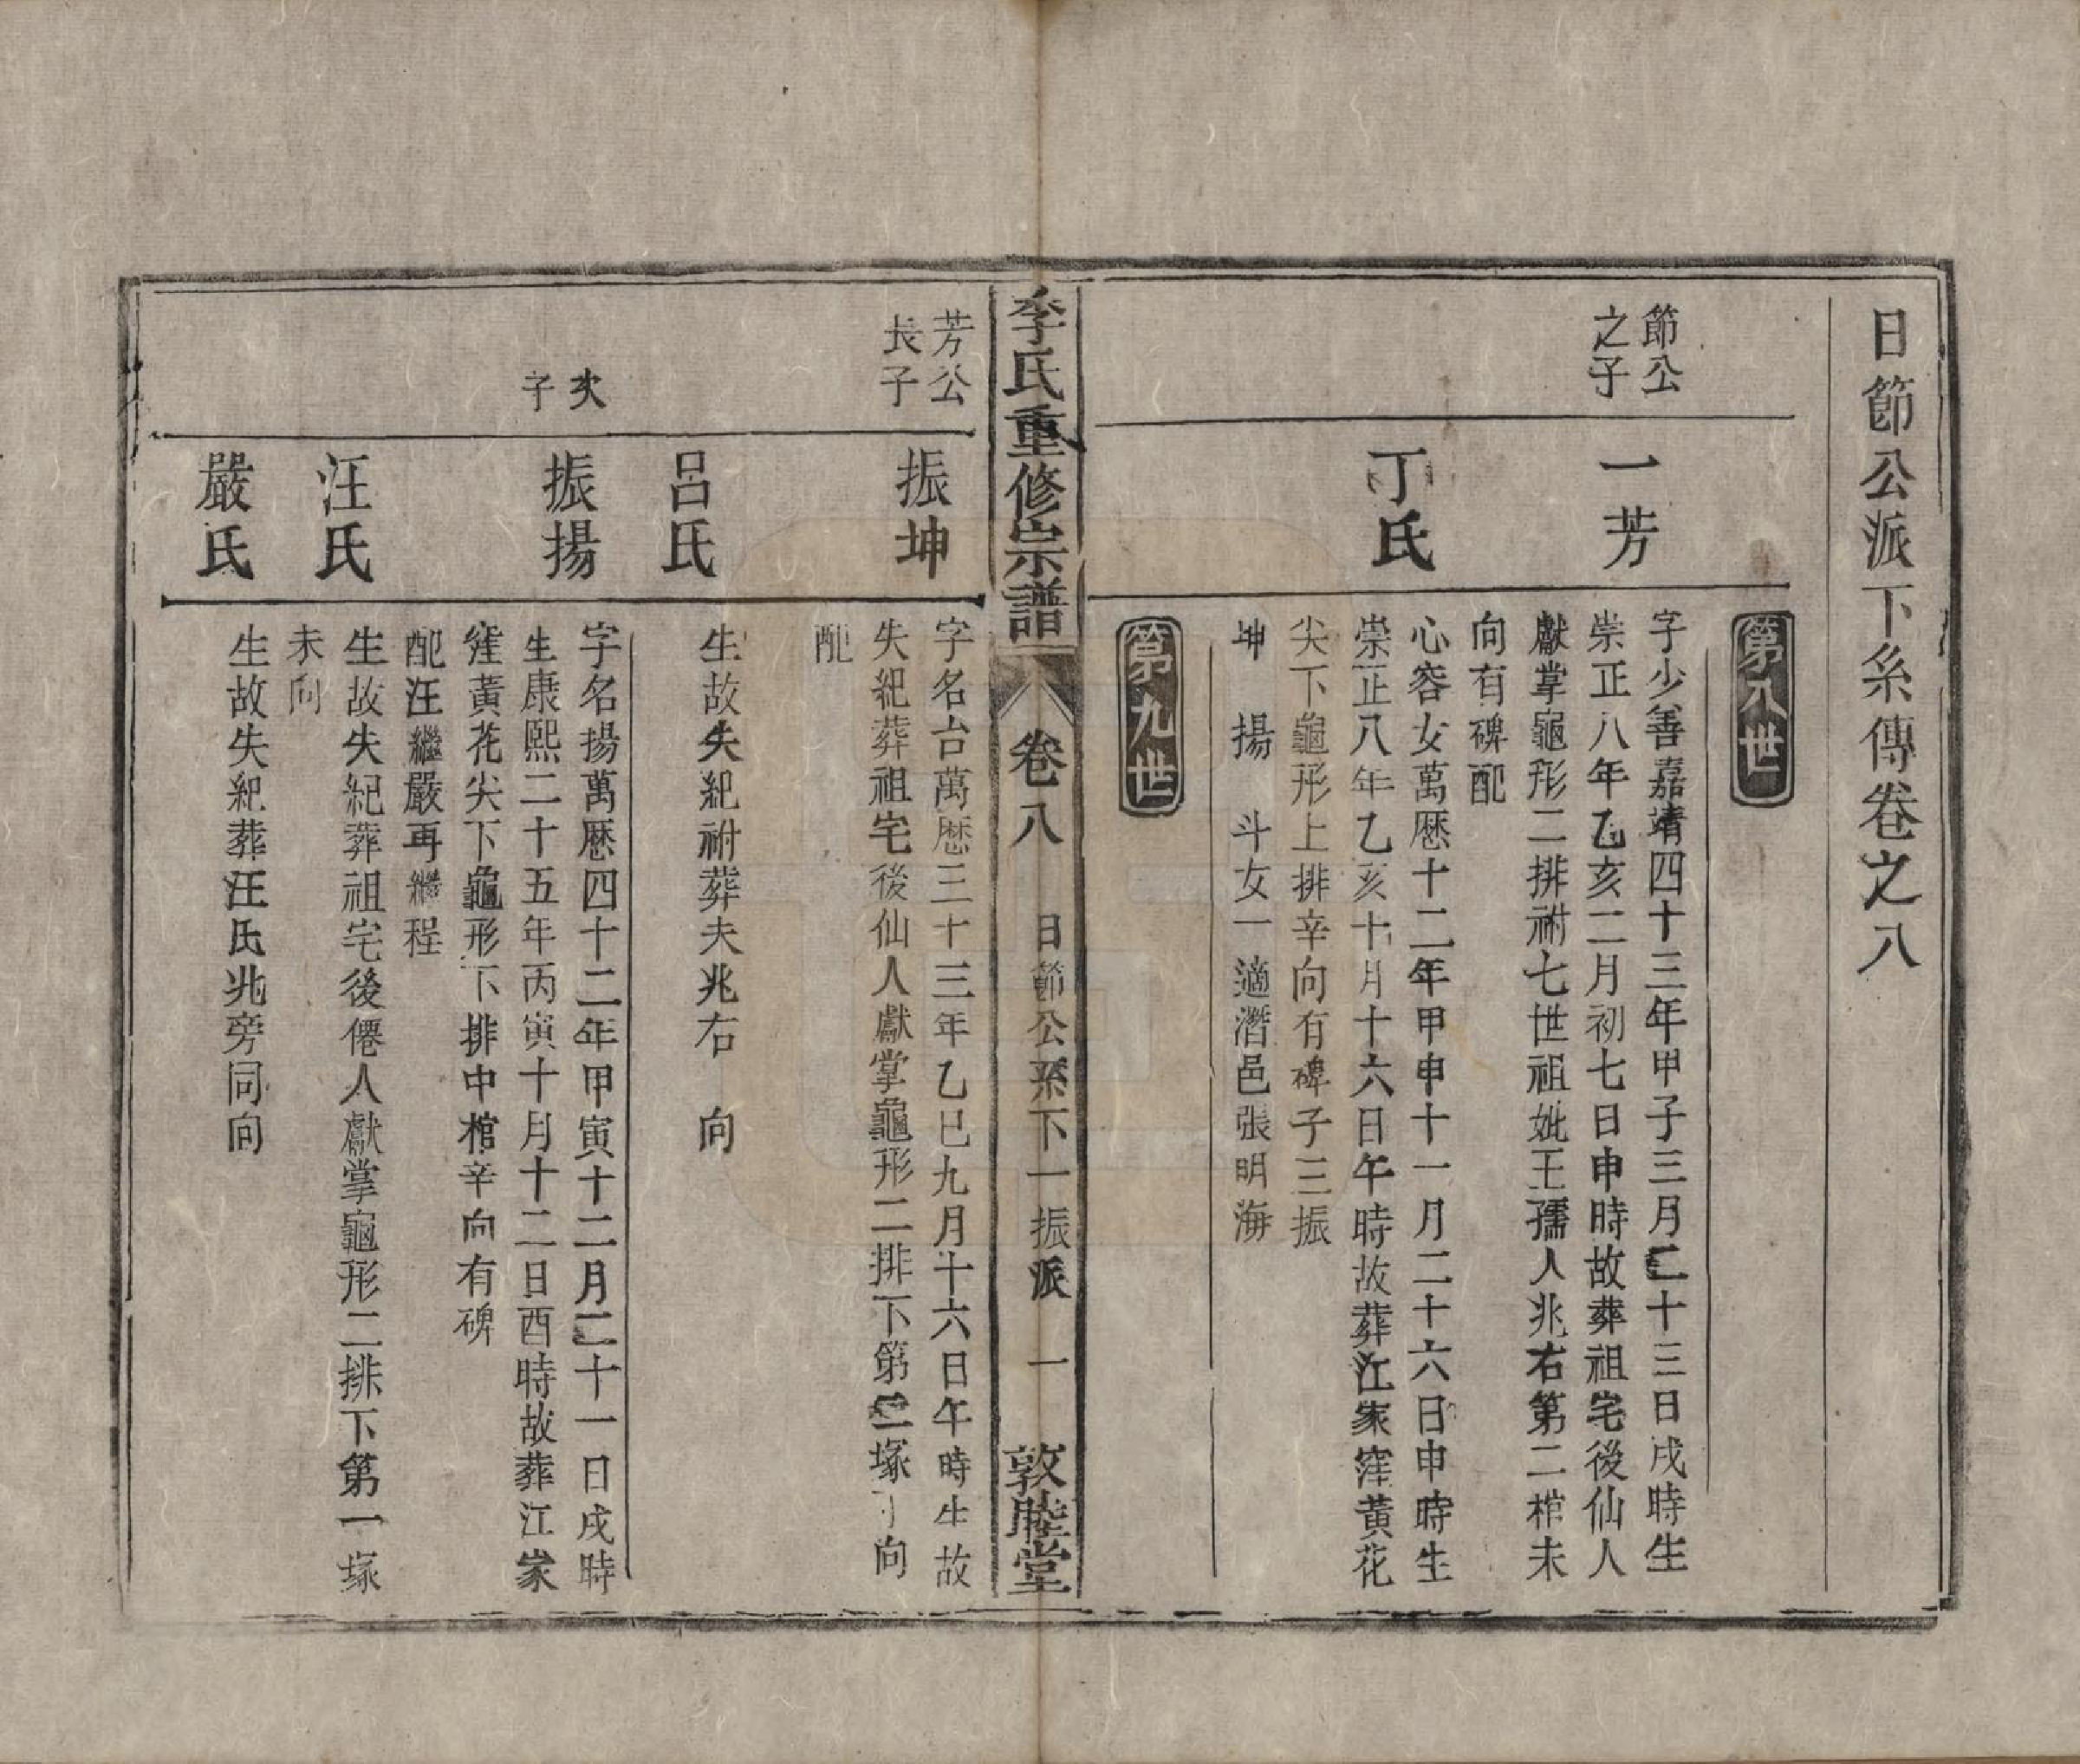 日節公派下系傳卷之八
第八世
節公
之子
一芳
字少善嘉靖四十三年甲子三月二十三日戌時生
崇正八年乙亥二月初七日申時故葬祖宅後仙人
獻掌龜形二排祔七世祖妣王孺人兆右第二棺未
向有碑配
丁氏
心容女萬歷十二年甲申十一月二十六日申時生
崇正八年乙亥十月十六日午時故葬江家窪黃花
尖下龜形上排辛向有碑子三振
坤 揚 斗女一適潛邑張明海
第九世
李氏重修宗譜
卷八
日節公系下一振派
一
敦睦堂
芳公
長子
振坤
字名台萬歷三十三年乙巳九月十六日午時生故
失紀葬祖宅後仙人獻掌龜形二排下第二塚 向
配
呂氏
生故失紀祔葬夫兆右 向
次
子
振揚
字名揚萬歷四十二年甲寅十二月二十一日戌時
生康熙二十五年丙寅十月十二日酉時故葬江家
窪黃花尖下龜形下排中棺辛向有碑
配汪繼嚴再繼程
汪氏
生故失紀葬祖宅後僊人獻掌龜形二排下第一塚
未向
嚴氏
生故失紀葬汪氏兆旁同向